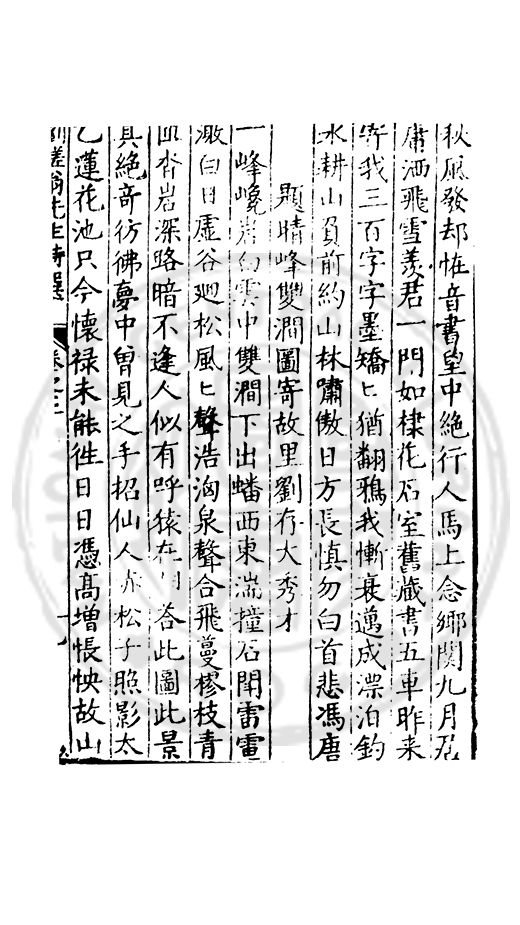 秋風發却怪音書望中絶行人馬上念鄉關九月居
庸洒飛雪羨君一門如棣花石室舊藏書五車昨来
寄我三百字字墨矯匕猶翻鴉我慚衰邁成漂泊釣
水耕山負前約山林嘯傲日方長慎勿白首悲馮唐
題晴峰雙澗圖寄故里劉存大秀才
一峰巉岩白雲中雙澗下出蟠西東湍撞石閗雷霆
澉白日虛谷廻松風匕聲浩洶泉聲合飛蔓樛枝青
匝沓岩深路暗不逢人似有呼猿在相答此圖此景
真絶奇彷彿夢中曾見之手招仙人赤松子照影太
乙蓮花池只今懷禄未能徃日日憑髙增悵怏故山
先生詩選 卷之三